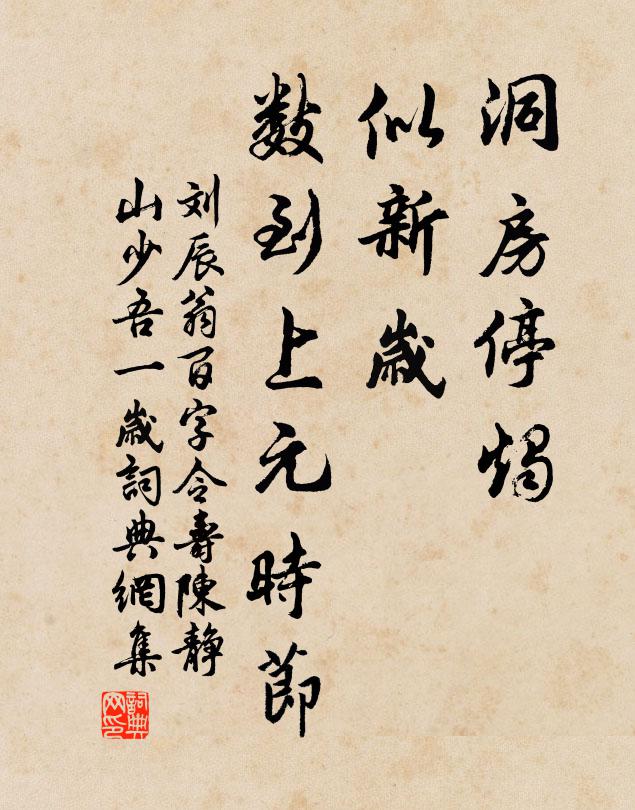 洞房停燭
似新歲
數到上元時節
刘辰翁百字令壽陳静
山少吾一歲詞典網集
詞典网印